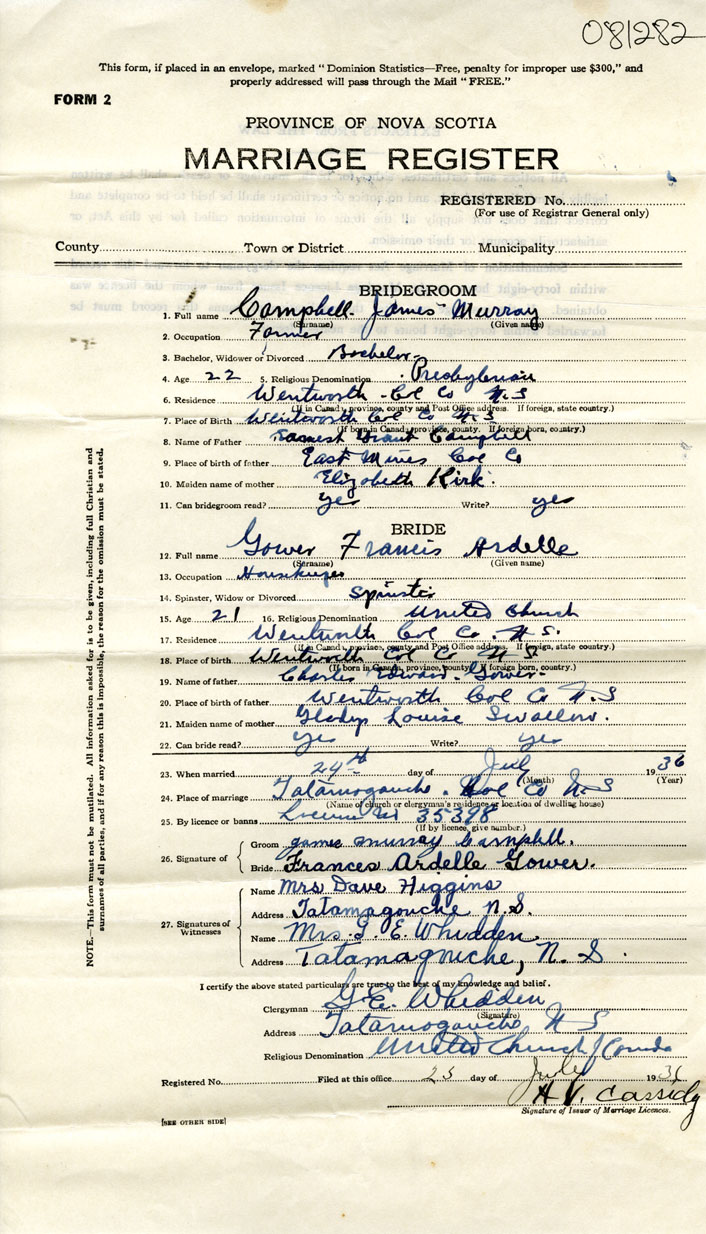 081282
This form, if placed in an envelope, marked "Dominion Statistics—Free, penalty for improper use $300," and
properly addressed will pass through the Mail "FREE."
FORM 2
PROVINCE OF NOVA SCOTIA
MARRIAGE REGISTER
REGISTERED No.
(For use of Registrar General only)
County Town or District Municipality
BRIDEGROOM
1. Full name Campbell James Murray
(Surname) (Given name)
2. Occupation Farmer
3. Bachelor, Widower or Divorced Bachelor
4. Age 22 5. Religious Denomination Presbyterian
6. Residence Wentworth Col Co N.S
(If in Canada, province, county and Post Office address. If foreign, state country.)
7. Place of Birth Wentworth Col Co N.S
(If born in Canada, province, county. If foreign born, country.)
8. Name of Father Grant Campbell
9. Place of birth of father East Mines Col Co
10. Maiden name of mother Elizabeth Kirk.
11. Can bridegroom read? yes Write? yes
BRIDE
12. Full name Gower Francis Ardelle
(Surname) (Given name)
13. Occupation
14. Spinster, Widow or Divorced Spinster
15. Age 21 16. Religious Denomination United Church
17. Residence Wentworth Col Co. N.S.
(If in Canada, province, county and Post Office address. If foreign, state country.)
18. Place of birth Wentworth Col Co N.S.
(If born in Canada, province, county. If foreign born, country.)
19. Name of father Charles Edward Gower
20. Place of birth of father Wentworth Col Co N.S
21. Maiden name of mother Gladys Louise Swallow.
22. Can bride read? yes Write? yes
23. When married 24th day of July 1936
(Month) (Year)
24. Place of marriage Tatamagouche. Col Co N.S
(Name of church or clergyman's residence or location of dwelling house)
25. By licence or banns License No 35398
(If by licence, give number.)
26. Signature of
Groom James Murray Campbell.
Bride Frances Ardelle Gower.
27. Signatures of Witnesses
Name Mrs Dave Higgins
Address Tatamagouche N.S.
Name Mrs. G. E. Whidden
Address Tatamagouche, N. S.
I certify the above stated particulars are true to the best of my knowledge and belief.
Clergyman G.E. Whidden
(Signature)
Address Tatamagouche N S
Religious Denomination United Church Canada
Registered No. Filed at this office day of July 1936
H. V. Cassidy
Signature of Issuer of Marriage Licences.
[SEE OTHER SIDE]
NOTE.—This form must not be mutilated. All information asked for is to be given, including full Christian and
surnames of all parties, and if for any reason this is impossible, the reason for the omission must be stated.